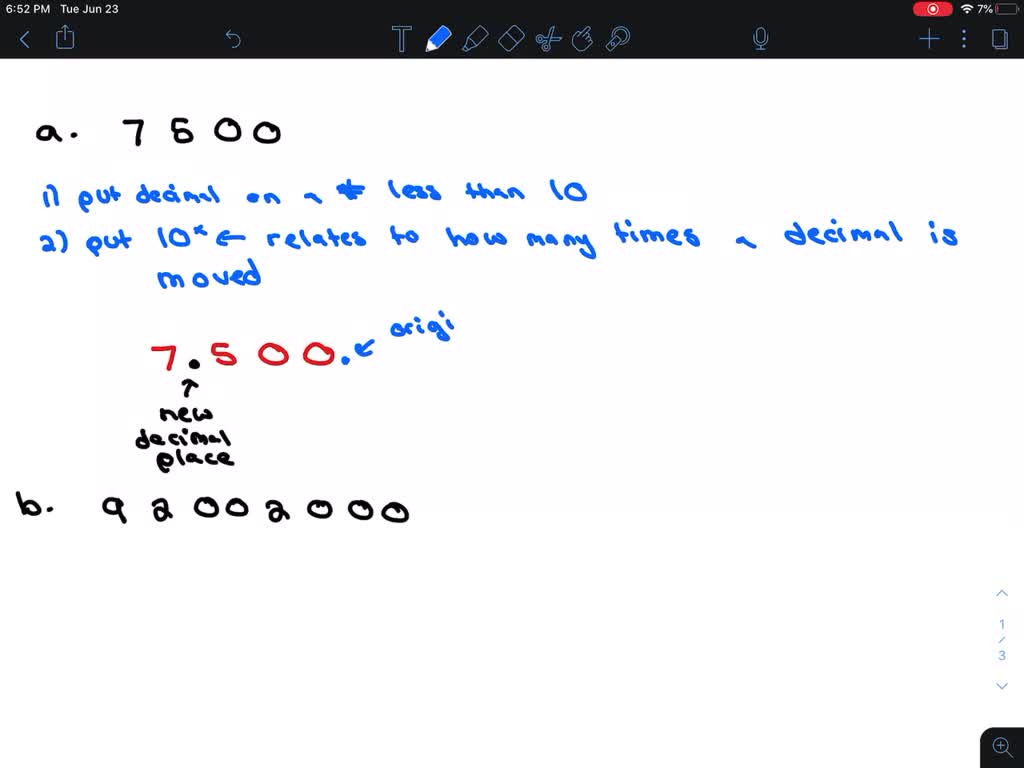 6:52 PM Tue Jun 23
7%
a. 7 5 0 0
1) put decimal on a # less than 10
2) put 10ˣ ← relates to how many times a decimal is
moved
7.500. ← origi
↑
new
decimal
place
b. 9 2 0 0 2 0 0 0
1
/
3